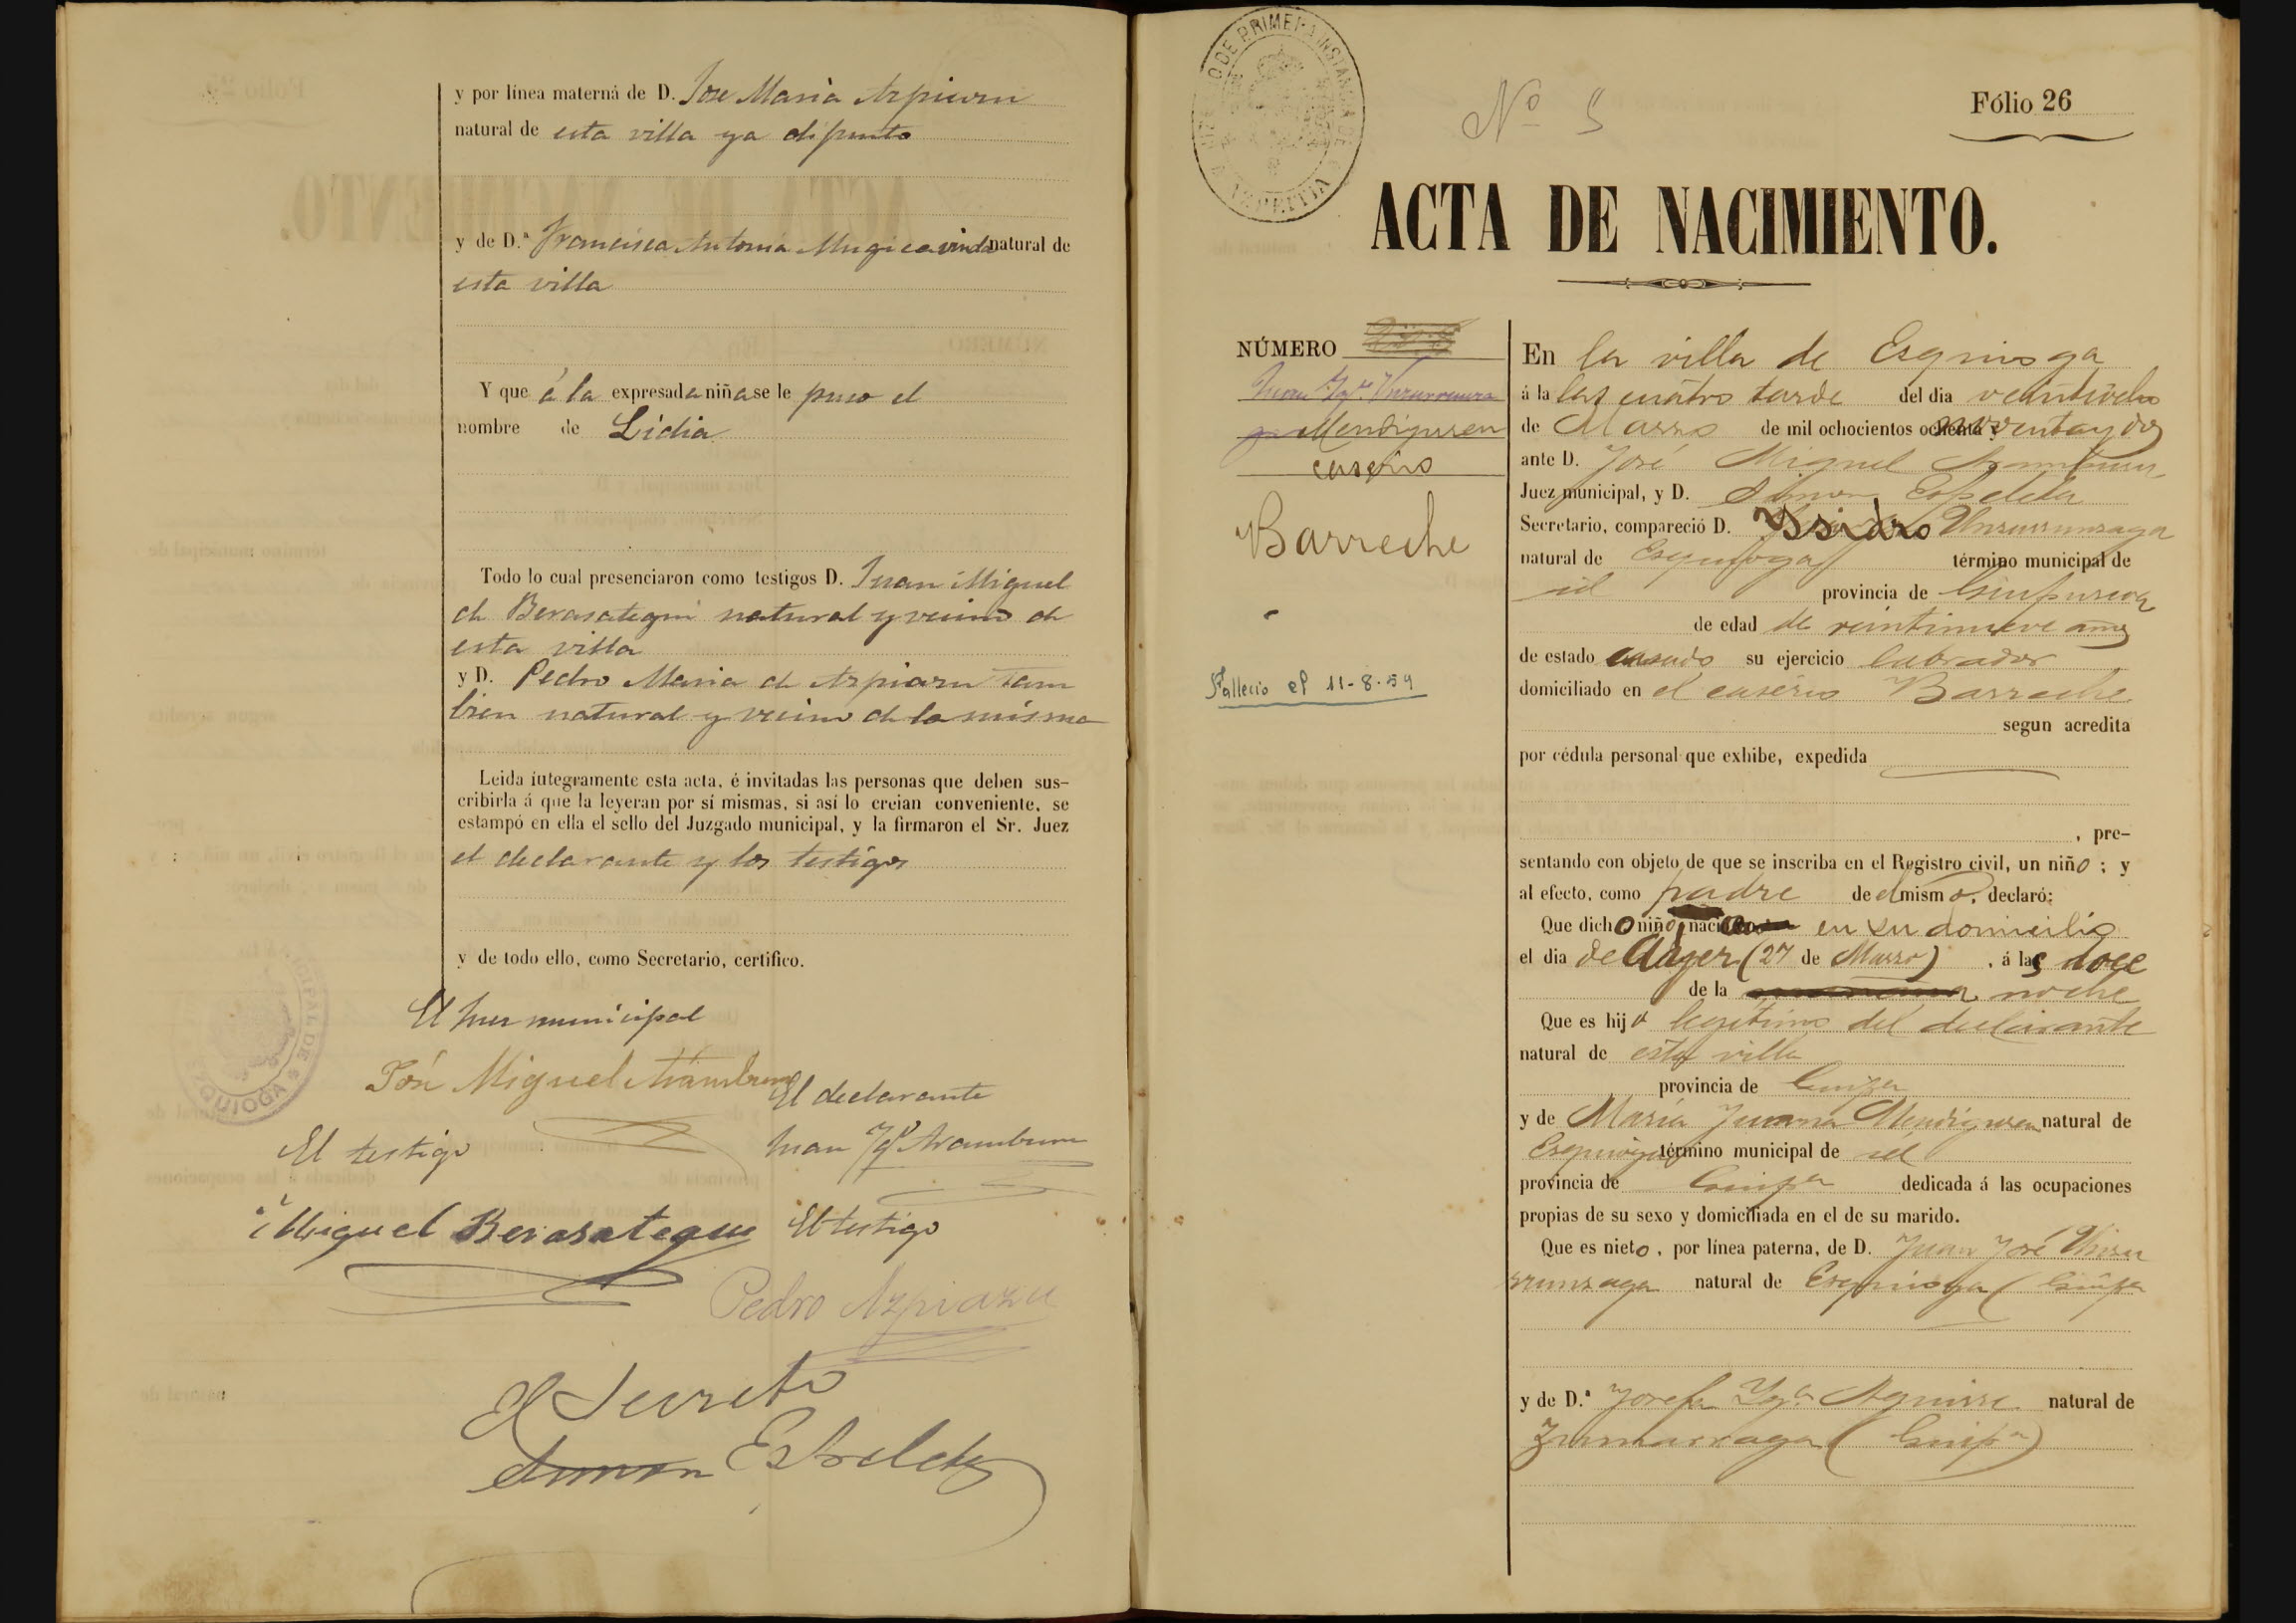 y por línea materná de D. Jose Maria Azpiazu
natural de esta villa ya difunto
y de D.ª Francisca Antonia Mugica viuda natural de
esta villa
Y que á la expresada niña se le puso el
nombre de Lidia
Todo lo cual presenciaron como testigos D. Juan Miguel
de Berasategui natural y vecino de
esta villa
y D. Pedro Maria de Azpiazu tam
bien natural y vecino de la misma
Leida íntegramente esta acta, é invitadas las personas que deben sus-
cribirla á que la leyeran por sí mismas, si así lo creian conveniente, se
estampó en ella el sello del Juzgado municipal, y la firmaron el Sr. Juez
el declarante y los testigos
y de todo ello, como Secretario, certifico.
El Juez municipal
José Miguel Aramburu
El declarante
Juan Ygº Aramburu
El testigo
Miguel Berasategui
El testigo
Pedro Azpiazu
El Secreto
Simon Ezpeleta
QUIOGA
JUZGADO DE PRIMERA INSTANCIA DE AZPEITIA
Nº 5
Fólio 26
ACTA DE NACIMIENTO.
NÚMERO
Juan Ygº Unzurrunzaga
y Mendiguren
caserio
Barreche
Fallecio el 11-8-59
En la villa de Esquioga
á la las cuatro tarde del dia veintiocho
de Marzo de mil ochocientos ochenta y noventa y dos
ante D. José Miguel Aramburu,
Juez municipal, y D. Simon Ezpeleta
Secretario, compareció D. Ysidro Unzurrunzaga
natural de Esquioga término municipal de
id provincia de Guipuzcoa
de edad de veintinueve años
de estado casado su ejercicio labrador
domiciliado en el caserio Barreche
segun acredita
por cédula personal que exhibe, expedida
, pre-
sentando con objeto de que se inscriba en el Registro civil, un niño ; y
al efecto, como padre de el mismo, declaró:
Que dicho niño nació en su domicilio
el dia de Ayer (27 de Marzo) , á las doce
de la noche
Que es hijo legítimo del declarante
natural de esta villa
provincia de Guipza
y de María Juana Mendiguren natural de
Esquioga término municipal de id
provincia de Guipza dedicada á las ocupaciones
propias de su sexo y domiciliada en el de su marido.
Que es nieto, por línea paterna, de D. Juan José Unzu
rrunzaga natural de Esquioga (Guipza
y de D.ª Josefa Ygª Aguirre natural de
Zumarraga (Guipª)